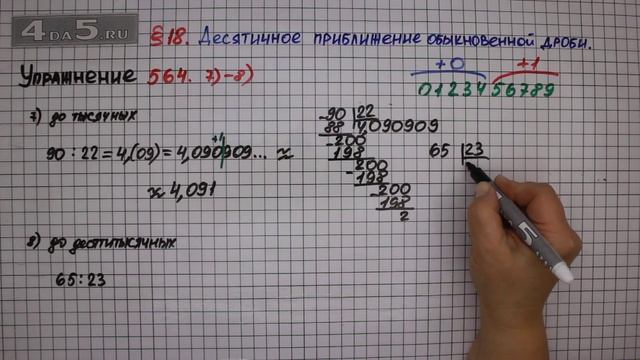 4DA5.RU
§18. Десятичное приближение обыкновенной дроби.
Упражнение 564. 7)-8)
+0 +1
0123456789
7) до тысячных
90 : 22 = 4,(09) = 4,090909... ≈
+1
≈ 4,091
90 | 22
88 | 4,090909
200
198
200
198
200
198
2
65 | 23
8) до десятитысячных
65 : 23